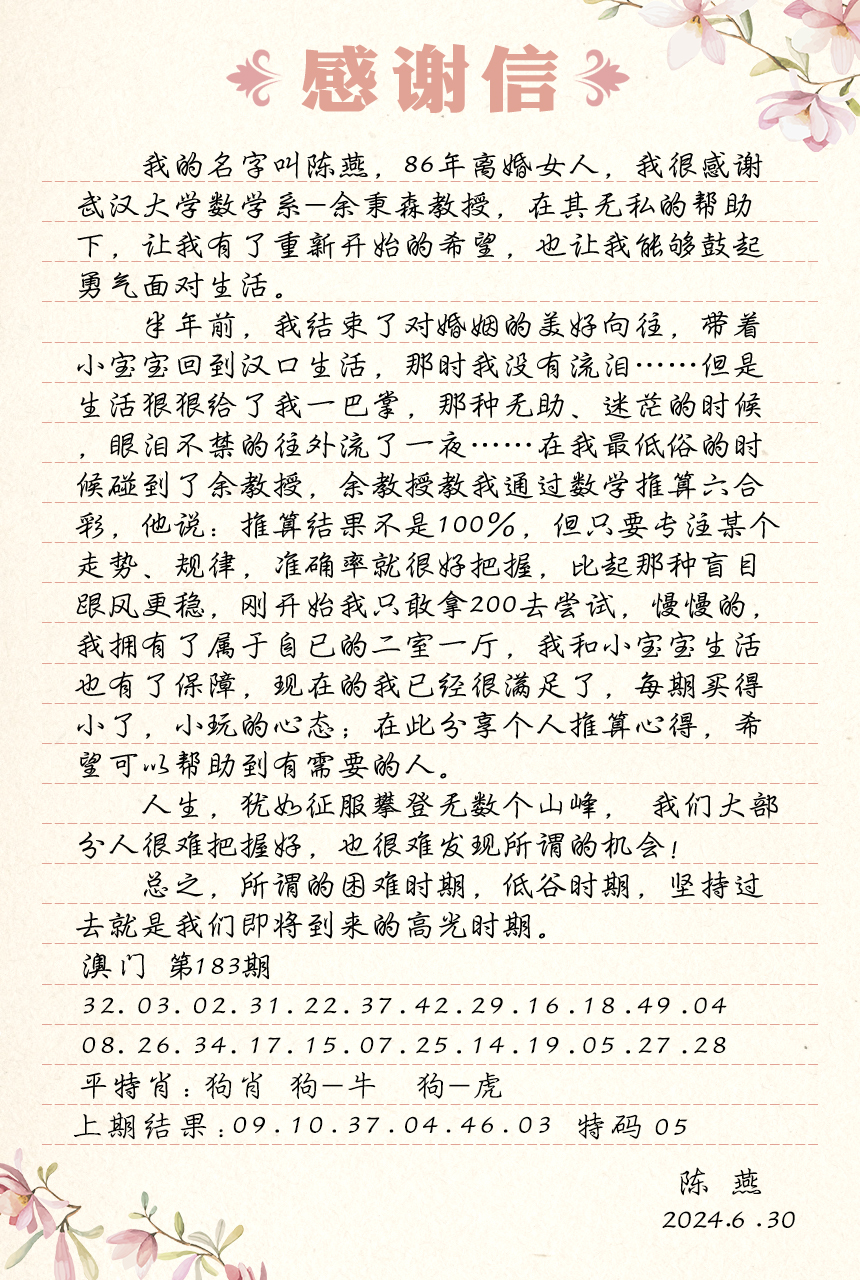 感谢信
我的名字叫陈燕，86年离婚女人，我很感谢
武汉大学数学系—余秉森教授，在其无私的帮助
下，让我有了重新开始的希望，也让我能够鼓起
勇气面对生活。
半年前，我结束了对婚姻的美好向往，带着
小宝宝回到汉口生活，那时我没有流泪……但是
生活狠狠给了我一巴掌，那种无助、迷茫的时候
，眼泪不禁的往外流了一夜……在我最低俗的时
候碰到了余教授，余教授教我通过数学推算六合
彩，他说：推算结果不是100%，但只要专注某个
走势、规律，准确率就很好把握，比起那种盲目
跟风更稳，刚开始我只敢拿200去尝试，慢慢的，
我拥有了属于自己的二室一厅，我和小宝宝生活
也有了保障，现在的我已经很满足了，每期买得
小了，小玩的心态；在此分享个人推算心得，希
望可以帮助到有需要的人。
人生，犹如征服攀登无数个山峰， 我们大部
分人很难把握好，也很难发现所谓的机会！
总之，所谓的困难时期，低谷时期，坚持过
去就是我们即将到来的高光时期。
澳门 第183期
32.03.02.31.22.37.42.29.16.18.49.04
08.26.34.17.15.07.25.14.19.05.27.28
平特肖：狗肖 狗—牛 狗—虎
上期结果：09.10.37.04.46.03 特码 05
陈 燕
2024.6.30